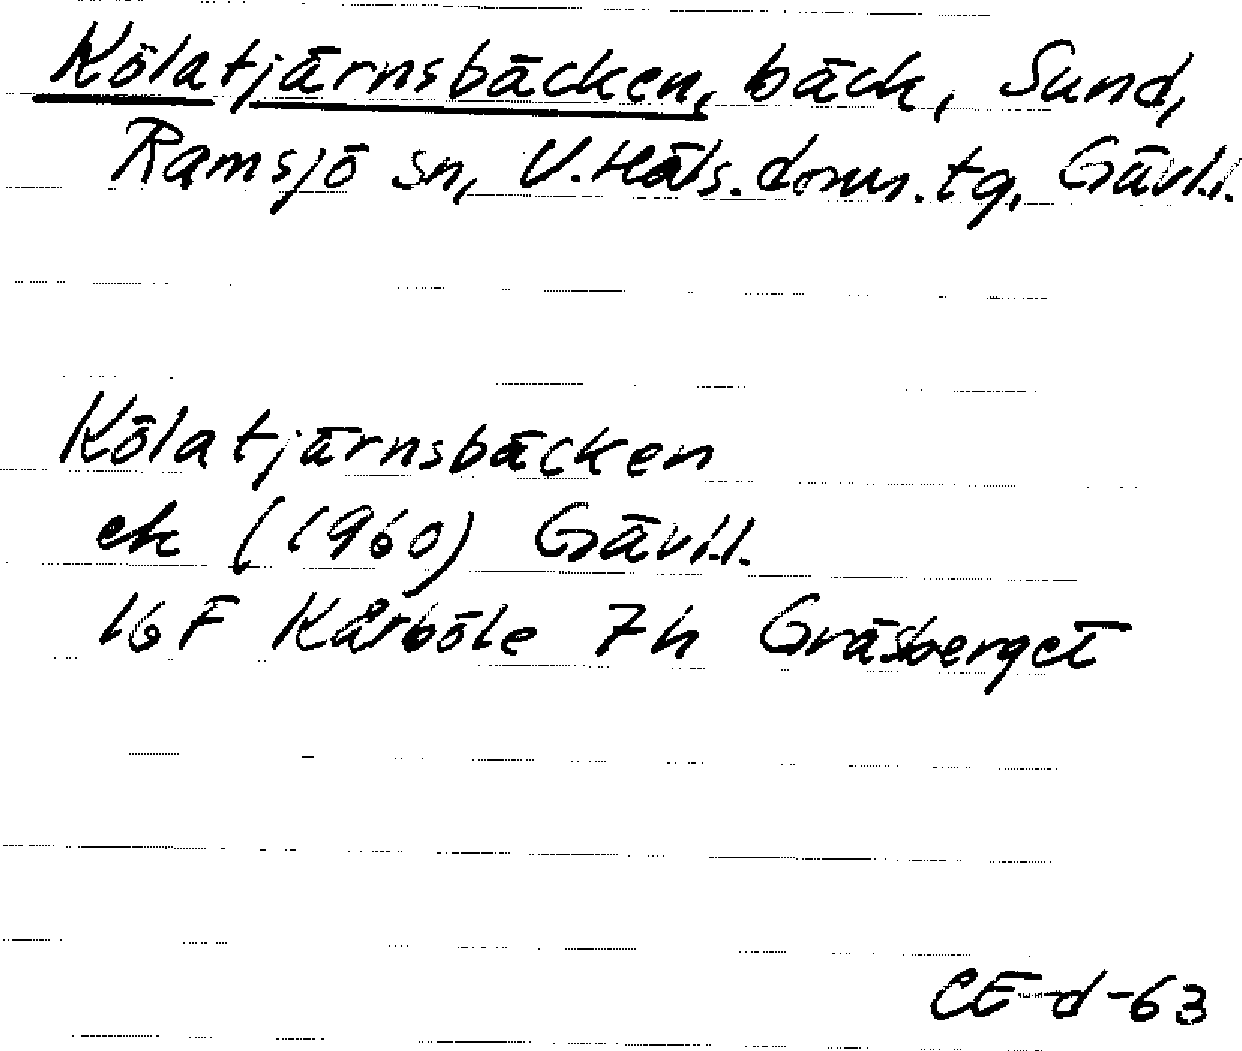 Kölatjärnsbäcken, bäck, Sund,
Ramsjö sn, V. Häls. doms. tg, Gävl.l.
Kölatjärnsbäcken
ek (1960) Gävl.l.
16 F Kårböle 7h Gräsberget
CE-d-63